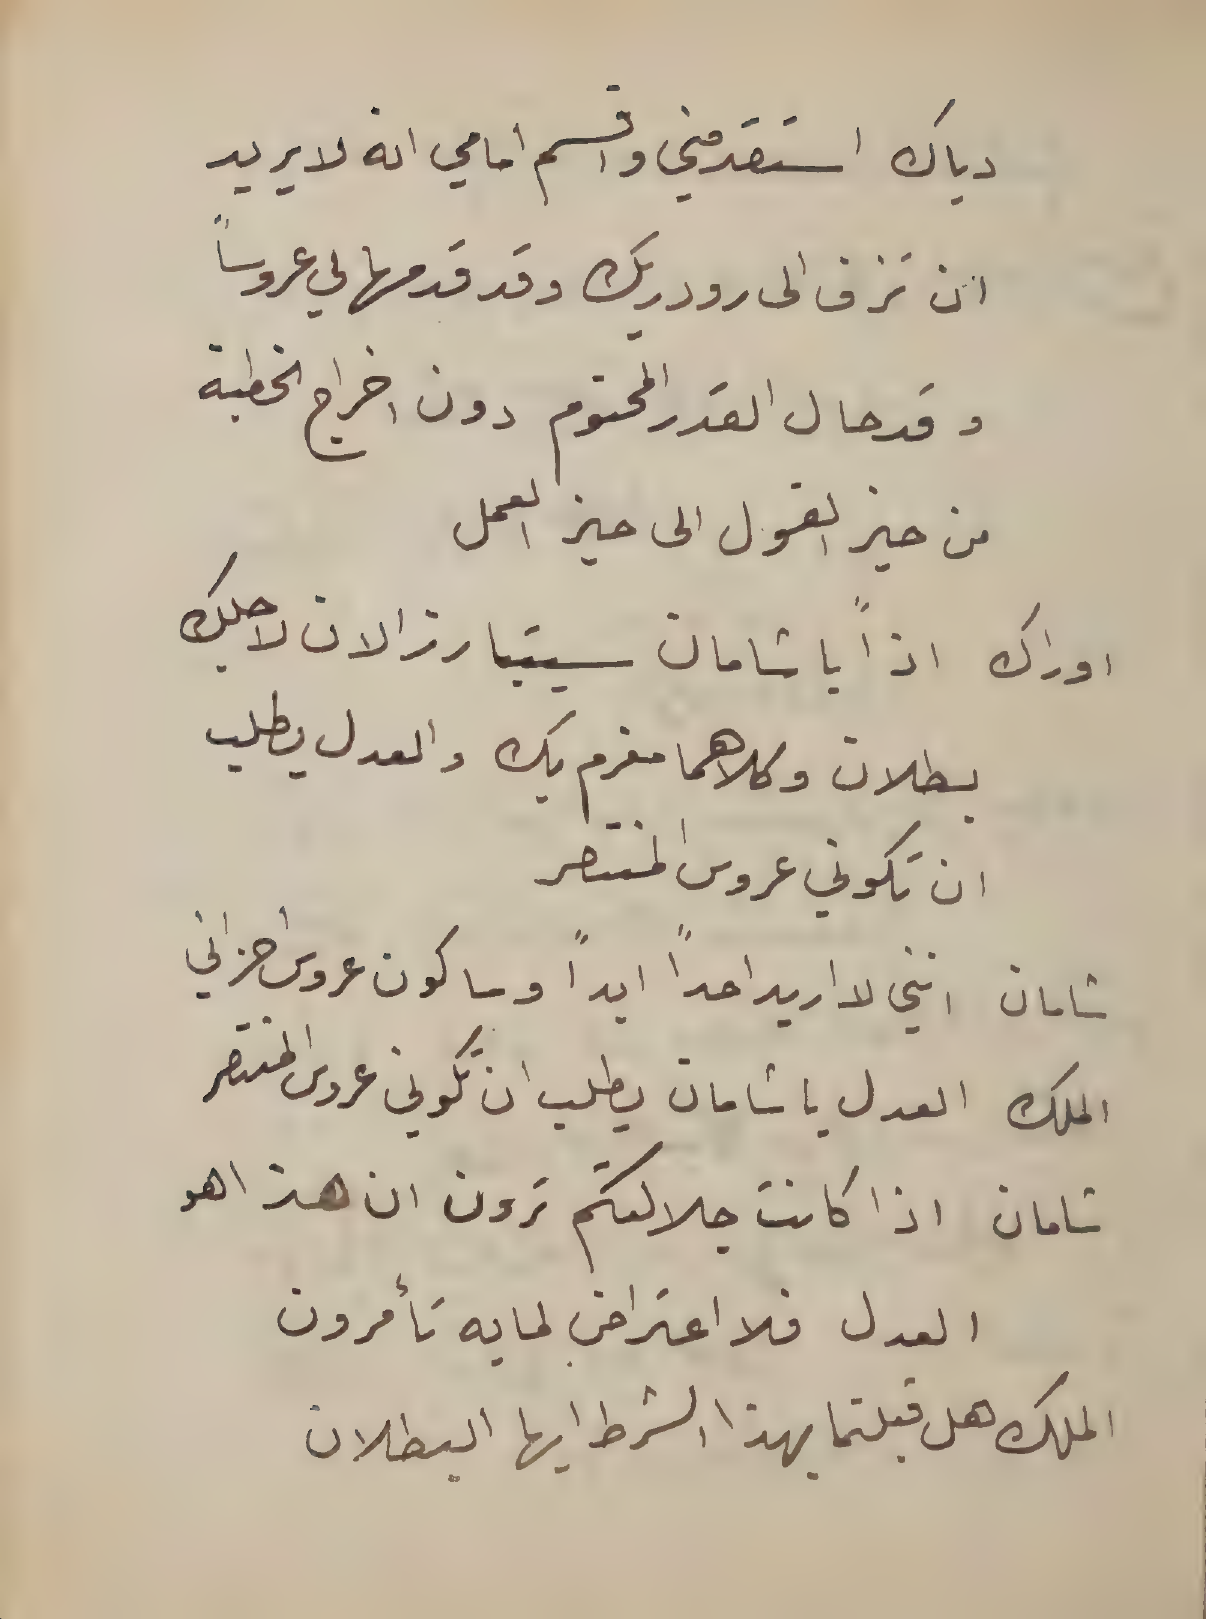 دياك استقدمني واقسم امامي انه لا يريد
ان تزف الى رودريك وقد قدمها لي عروساً
وقد حال القدر المحتوم دون اخراج الخطبة
من حيز القول الى حيز العمل
اوراك اذاً يا شامان سيتبارز الان لاجلك
بطلان وكلاهما مغرم بك والعدل يطلب
ان تكوني عروس المنتصر
شامان انني لا اريد احداً ابداً وساكون عروس احزاني
الملك العدل يا شامان يطلب ان تكوني عروس المنتصر
شامان اذا كانت جلالتكم ترون ان هذا هو
العدل فلا اعتراض لما به تأمرون
الملك هل قبلتما بهذا الشرط ايها البطلان